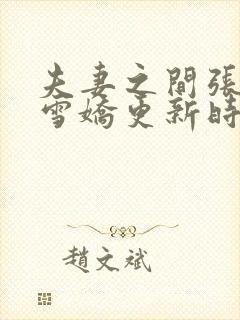 夫妻之間張
雪嬌更新時
趙文斌